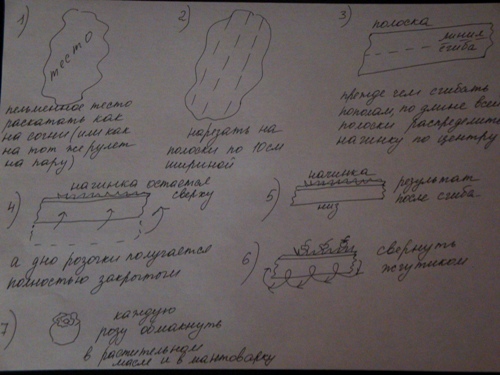 1)
тесто
пельменное тесто
раскатать как
на сочни (или как
на тот же рулет
на пару)
2)
нарезать на
полоски по 10см
шириной
3)
полоска
линия
сгиба
прежде чем сгибать
пополам, по длине всей
полоски распределить
начинку по центру
4)
начинка остается
сверху
а дно розочки получается
полностью закрытым
5)
начинка
низ
результат
после сгиба
6)
свернуть
жгутиком
7)
каждую
розу обмакнуть
в растительном
масле и в мантоварку